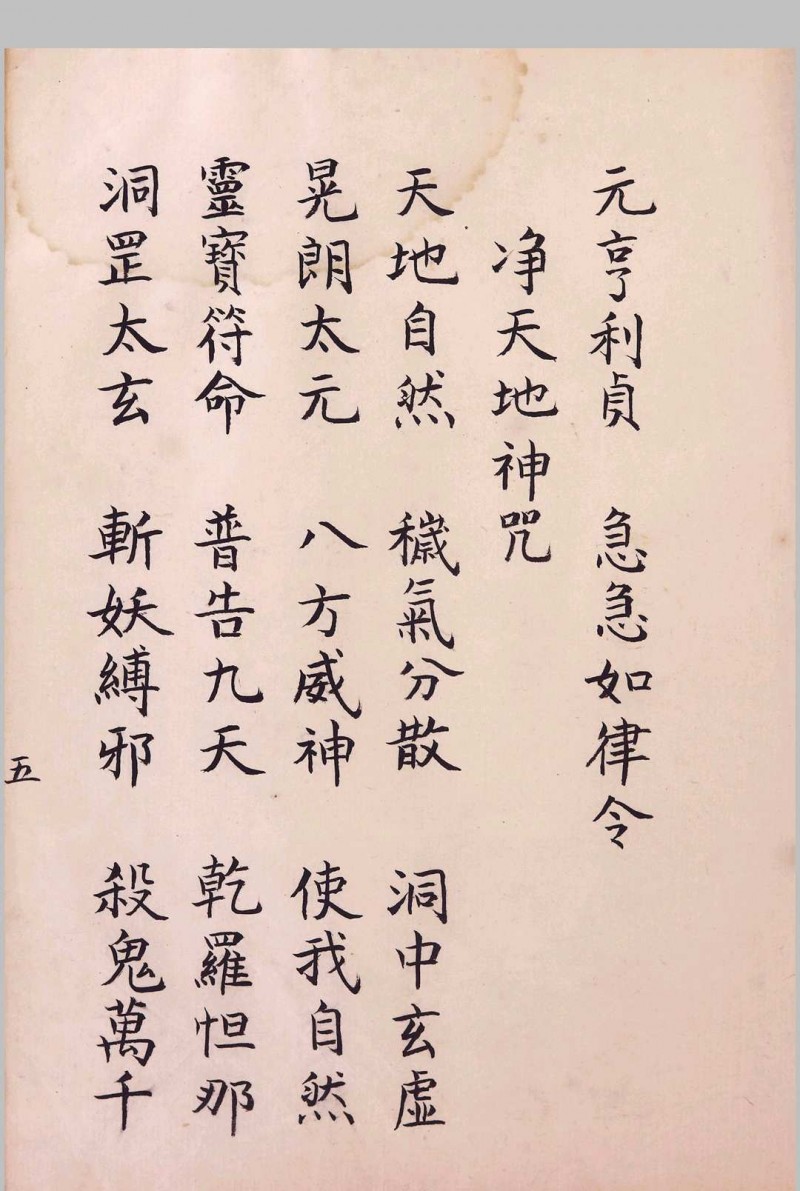 元亨利貞　急急如律令
净天地神咒
天地自然　穢氣分散　洞中玄虛
晃朗太元　八方威神　使我自然
靈寶符命　普告九天　乾羅怛那
洞罡太玄　斬妖縛邪　殺鬼萬千
五